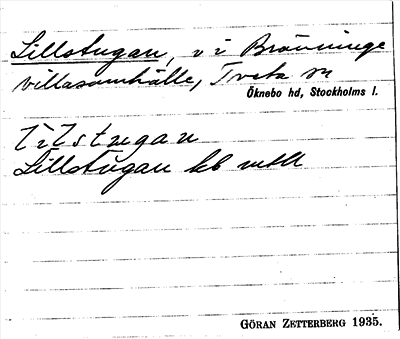 Lillstugan, v i Bränninge
villasamhälle, Tveta sn
Öknebo hd, Stockholms l.
Lillstugan kb
GÖRAN ZETTERBERG 1935.